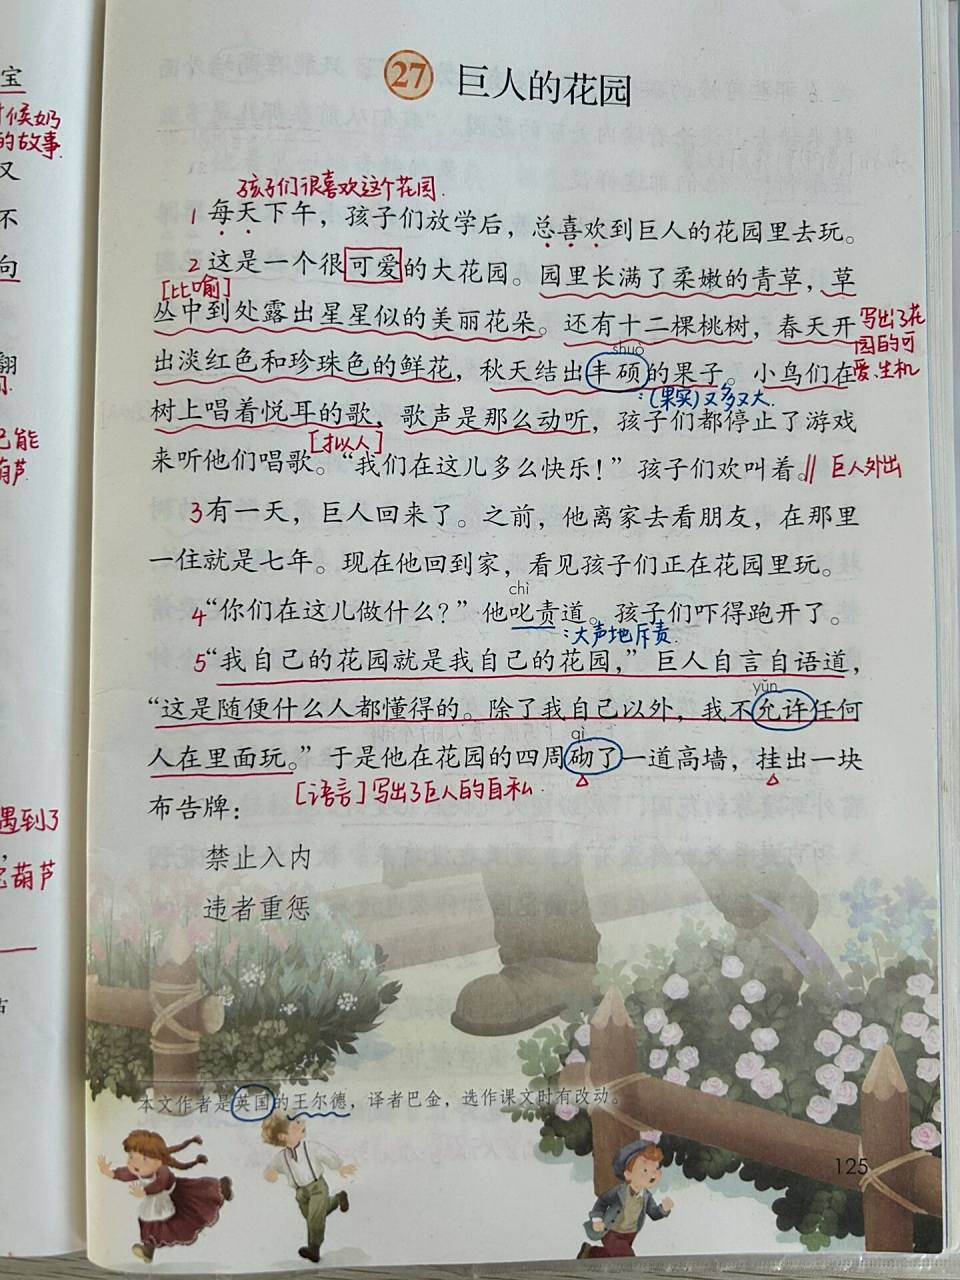 宝
候奶
的故事
又
不
句
翻
己能
葫芦
遇到了
宝葫芦
27 巨人的花园
孩子们很喜欢这个花园.
1 每天下午，孩子们放学后，总喜欢到巨人的花园里去玩。
2 这是一个很可爱的大花园。园里长满了柔嫩的青草，草
[比喻]
丛中到处露出星星似的美丽花朵。还有十二棵桃树，春天开
写出了花
园的可
爱、生机
shuò
出淡红色和珍珠色的鲜花，秋天结出丰硕的果子。小鸟们在
：(果实)又多又大.
树上唱着悦耳的歌，歌声是那么动听，孩子们都停止了游戏
[拟人]
来听他们唱歌。“我们在这儿多么快乐！”孩子们欢叫着。// 巨人外出
3 有一天，巨人回来了。之前，他离家去看朋友，在那里
一住就是七年。现在他回到家，看见孩子们正在花园里玩。
chì
4 “你们在这儿做什么？”他叱责道。孩子们吓得跑开了。
：大声地斥责.
5 “我自己的花园就是我自己的花园，”巨人自言自语道，
yǔn
“这是随便什么人都懂得的。除了我自己以外，我不允许任何
qì
人在里面玩。”于是他在花园的四周砌了一道高墙，挂出一块
[语言]写出了巨人的自私.
布告牌：
禁止入内
违者重惩
本文作者是英国的王尔德，译者巴金，选作课文时有改动。
125